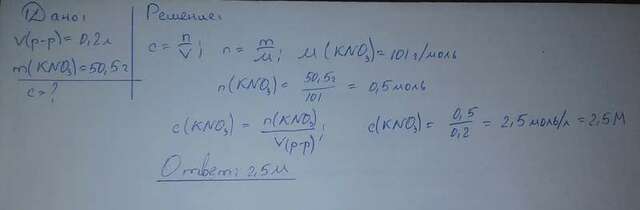 12 Дано:
V(р-р) = 0,2л
m(KNO₃)=50,5г
c-?
Решение:
c = n/V; n = m/M; M(KNO₃)=101г/моль
n(KNO₃) = 50,5г/101 = 0,5моль
c(KNO₃) = n(KNO₃)/V(р-р); c(KNO₃) = 0,5/0,2 = 2,5 моль/л = 2,5М
Ответ: 2,5М